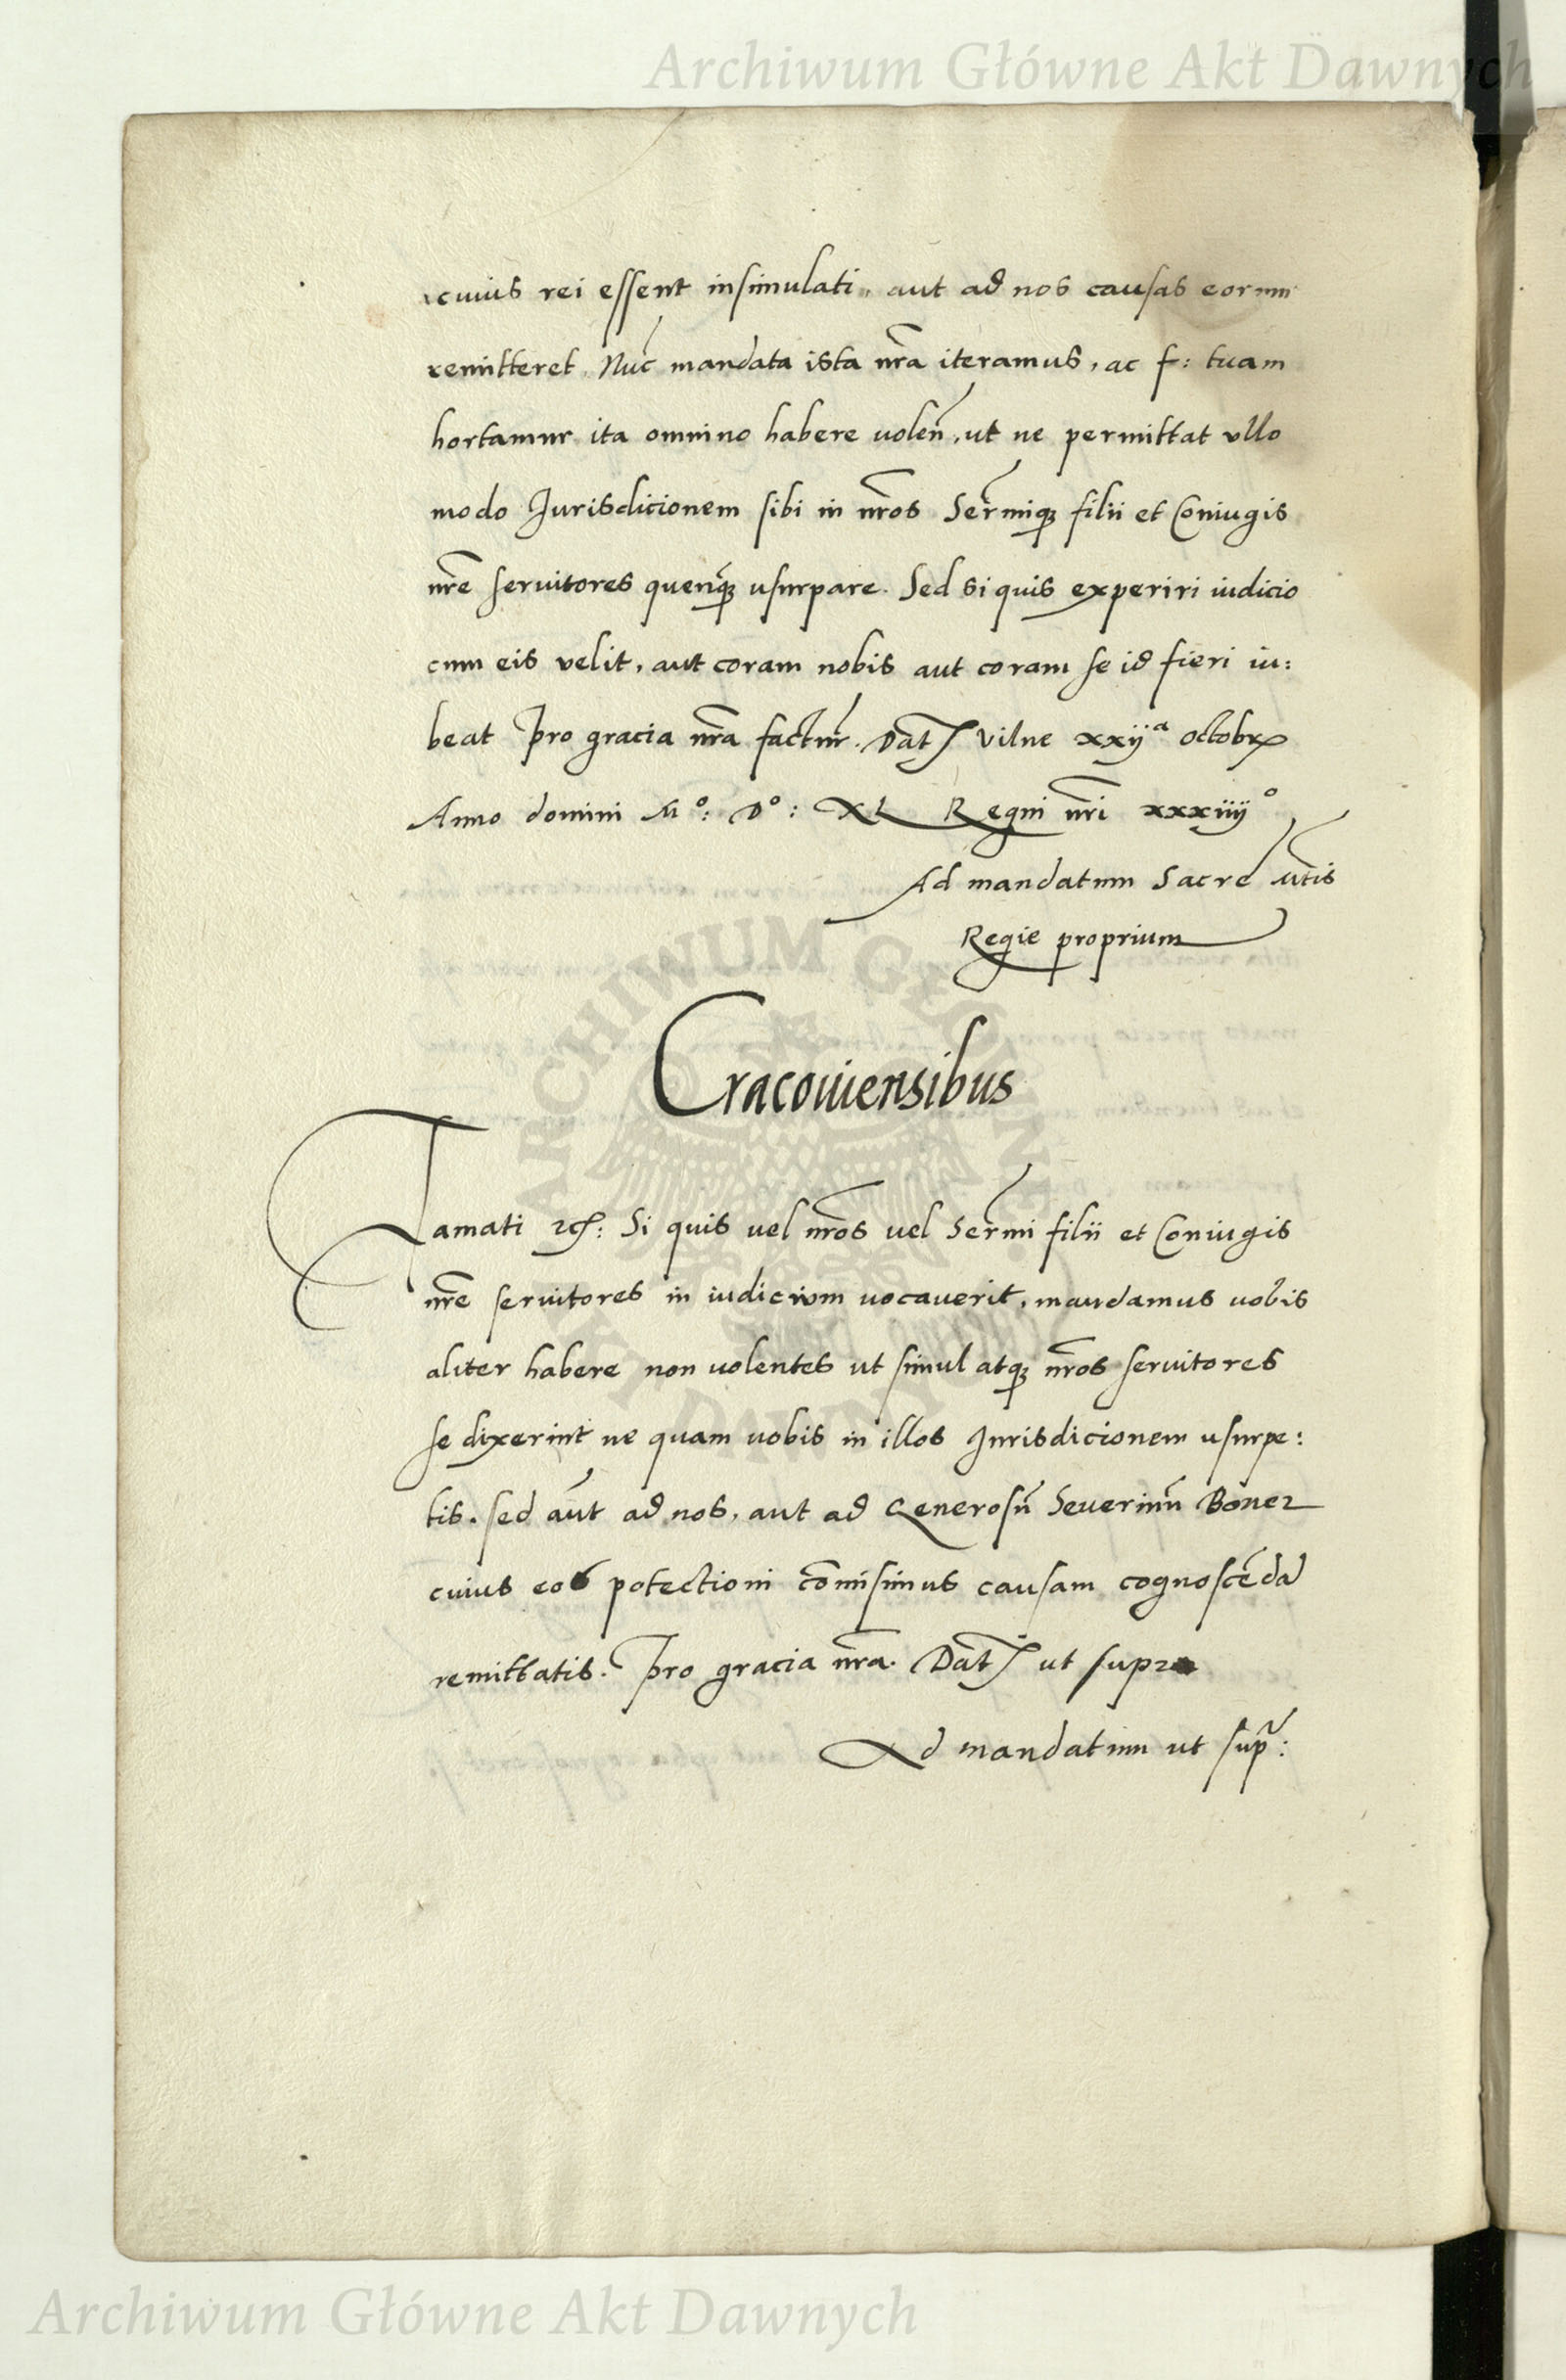 Archiwum Główne Akt Dawnych
icuius rei essent insimulati, aut ad nos causas eorum
remitteret. Nuc̃ mandata ista nr̃a iteramus, ac f: tuam
hortamur ita omnino habere uolen̄, ut ne permittat ullo
modo Jurisdicionem sibi in nr̃os Ser̃miqꝫ filii et Coniugis
nr̃e seruitores quenq̃ꝫ usurpare. Sed si quis experiri iudicio
cum eis velit, aut coram nobis aut coram se id fieri iu:
beat Pro gracia nr̃a factur̃. Dat̃ Vilne xxijᵃ octobrꝭ
Anno domini Mº: Dº: XL Regni nr̃i xxxiiijº
Ad mandatum Sacre Mtĩs
Regie proprium
Cracouiensibus
Famati ꝛcꝭ: Si quis uel nr̃os uel Ser̃mi filii et Coniugis
nr̃e seruitores in iudicium uocauerit, mandamus uobis
aliter habere non uolentes ut simul atqꝫ nr̃os seruitores
se dixerint ne quam uobis in illos Jurisdicionem usurpe:
tis. sed aut ad nos, aut ad Generosũ Seuerinũ Boner
cuius eos potectioni com̃isimus causam cognoscẽdã
remittatis. Pro gracia nr̃a. Dat̃ ut supra
Ad mandatum ut sup̃:
ARCHIWUM GŁÓWNE AKT DAWNYCH
Archiwum Główne Akt Dawnych